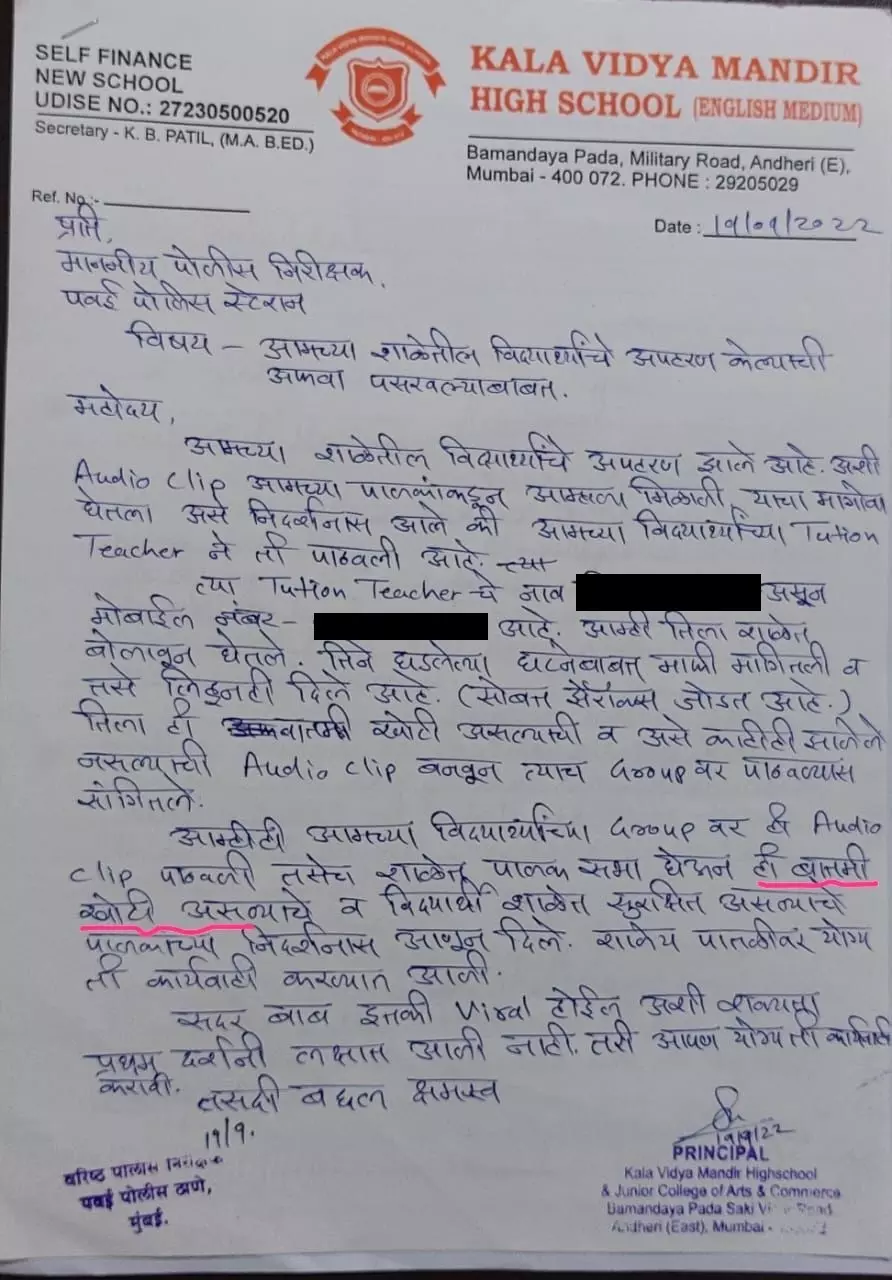 SELF FINANCE
NEW SCHOOL
UDISE NO.: 27230500520
Secretary - K. B. PATIL, (M.A. B.ED.)
KALA VIDYA MANDIR
HIGH SCHOOL (ENGLISH MEDIUM)
Bamandaya Pada, Military Road, Andheri (E),
Mumbai - 400 072. PHONE : 29205029
Ref. No :-
Date : 19/09/2022
प्रति,
माननीय पोलीस निरीक्षक,
पवई पोलिस स्टेशन
विषय – आमच्या शाळेतील विद्यार्थ्यांचे अपहरण केल्याची
अफवा पसरवल्याबाबत.
महोदय,
आमच्या शाळेतील विद्यार्थ्यांचे अपहरण झाले आहे. अशी
Audio Clip आमच्या पालकांकडून आम्हाला मिळाली, याचा मागोवा
घेतला असे निदर्शनास आले की आमच्या विद्यार्थ्यांच्या Tution
Teacher ने ती पाठवली आहे. त्या
त्या Tution Teacher चे नाव असून
मोबाईल नंबर – आहे. आम्ही तिला शाळेत
बोलावून घेतले. तिने घडलेल्या घटनेबाबत माफी मागितली व
तसे लिहूनही दिले आहे. (सोबत झेरॉक्स जोडत आहे.)
तिला ही बातमी खोटी असल्याची व असे काहीही झालेले
नसल्याची Audio clip बनवून त्याच Group वर पाठवण्यास
सांगितले.
आम्हीही आमच्या विद्यार्थ्यांच्या Group वर ही Audio
clip पाठवली तसेच शाळेत पालक सभा घेऊन ही बातमी
खोटी असल्याचे व विद्यार्थी शाळेत सुरक्षित असल्याचे
पालकांच्या निदर्शनास आणून दिले. शालेय पातळीवर योग्य
ती कार्यवाही करण्यात आली.
सदर बाब इतकी Viral होईल अशी शक्यता
प्रथम दर्शनी लक्षात आली नाही. तरी आपण योग्य ती कार्यवाही
करावी.
तसदी बद्दल क्षमस्व
19/9.
वरिष्ठ पोलीस निरीक्षक
पवई पोलीस ठाणे,
मुंबई.
19/9/22
PRINCIPAL
Kala Vidya Mandir Highschool
& Junior College of Arts & Commerce
Bamandaya Pada Saki Road
Andheri (East), Mumbai -